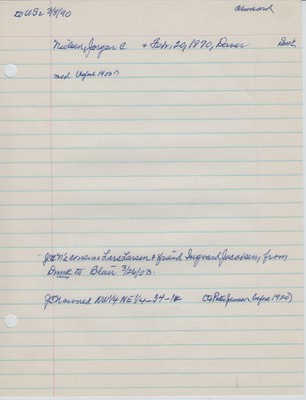 to US 2/8/90
Nielsen, Jorgen C * Feb. 20, 1870, Daser
med (before 1903?)
JCN's cousin Lars Larsen & friend Ingvard Jacobsen, from
Dmk to Blair 3/26/03.
JCN owned NW1/4 NE1/4-34-18 (to Pete Jensen before 1920)